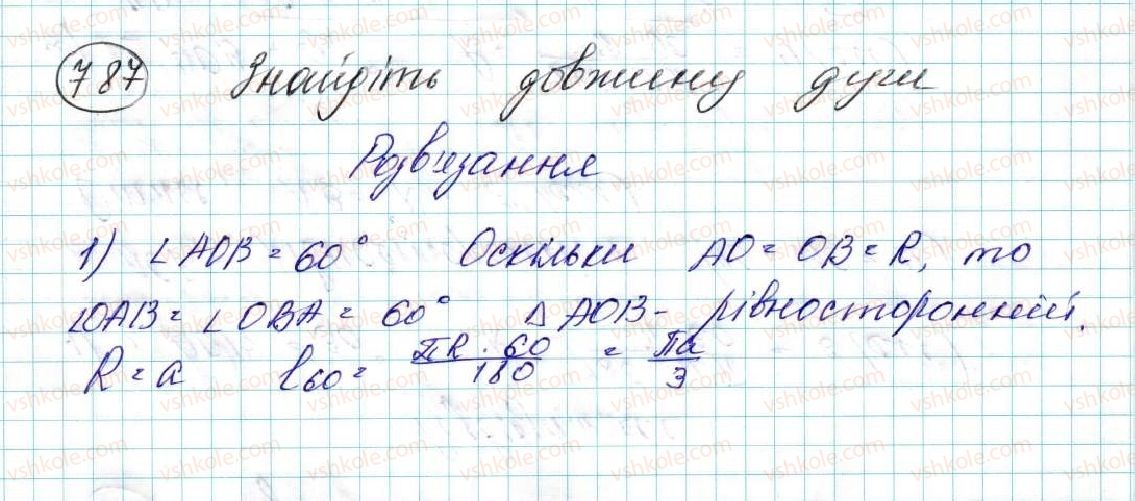 787 Знайдіть довжину дуги
Розв'язання
1) ∠AOB = 60° Оскільки AO = OB = R, то
∠OAB = ∠OBA = 60° △AOB - рівносторонній.
R = a l60 = πR · 60 / 180 = πa / 3